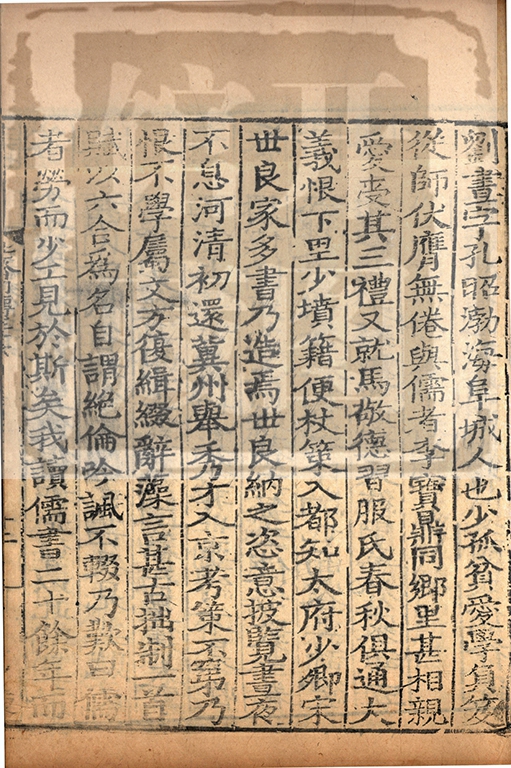 劉晝字孔昭渤海阜城人也少孤貧愛學負笈
從師伏膺無倦與儒者李寶鼎同鄉里甚相親
愛受其三禮又就馬敬德習服氏春秋俱通大
義恨下里少墳籍便杖策入都知太府少卿宋
世良家多書乃造焉世良納之恣意披覽晝夜
不息河清初還冀州舉秀才入京考策不第乃
恨不學屬文方復緝綴辭藻言甚古拙制一首
賦以六合為名自謂絕倫吟諷不輟乃歎曰儒
者勞而少工見於斯矣我讀儒書二十餘年而